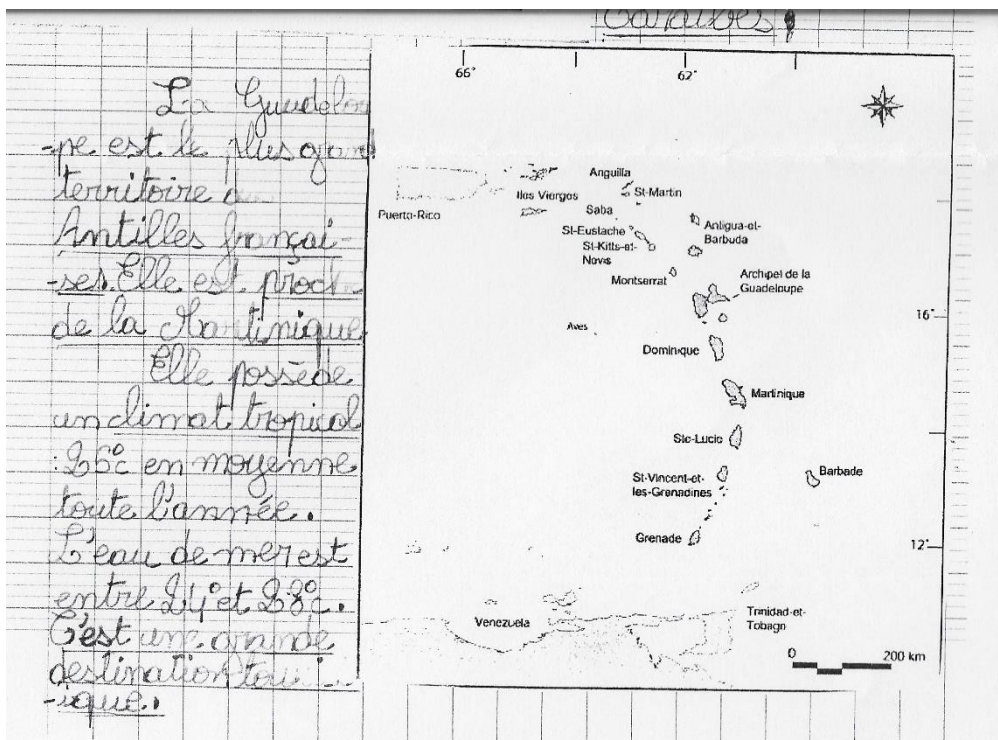 Caraïbes
La Guadelou
-pe est le plus grand
territoire
Antilles françai-
-ses. Elle est proche
de la Martinique.
Elle possède
un climat tropical
: 26°c en moyenne
toute l'année.
L'eau de mer est
entre 24° et 28°c.
C'est une grande
destination
-ique.
66°
62°
Anguilla
St-Martin
Iles Vierges
Puerto-Rico
Saba
St-Eustache
St-Kitts-et-
Nevis
Antigua-et-
Barbuda
Montserrat
Archipel de la
Guadeloupe
16°
Aves
Dominique
Martinique
Ste-Lucie
St-Vincent-et-
les-Grenadines
Barbade
Grenade
12°
Venezuela
Trinidad-et-
Tobago
0
200 km